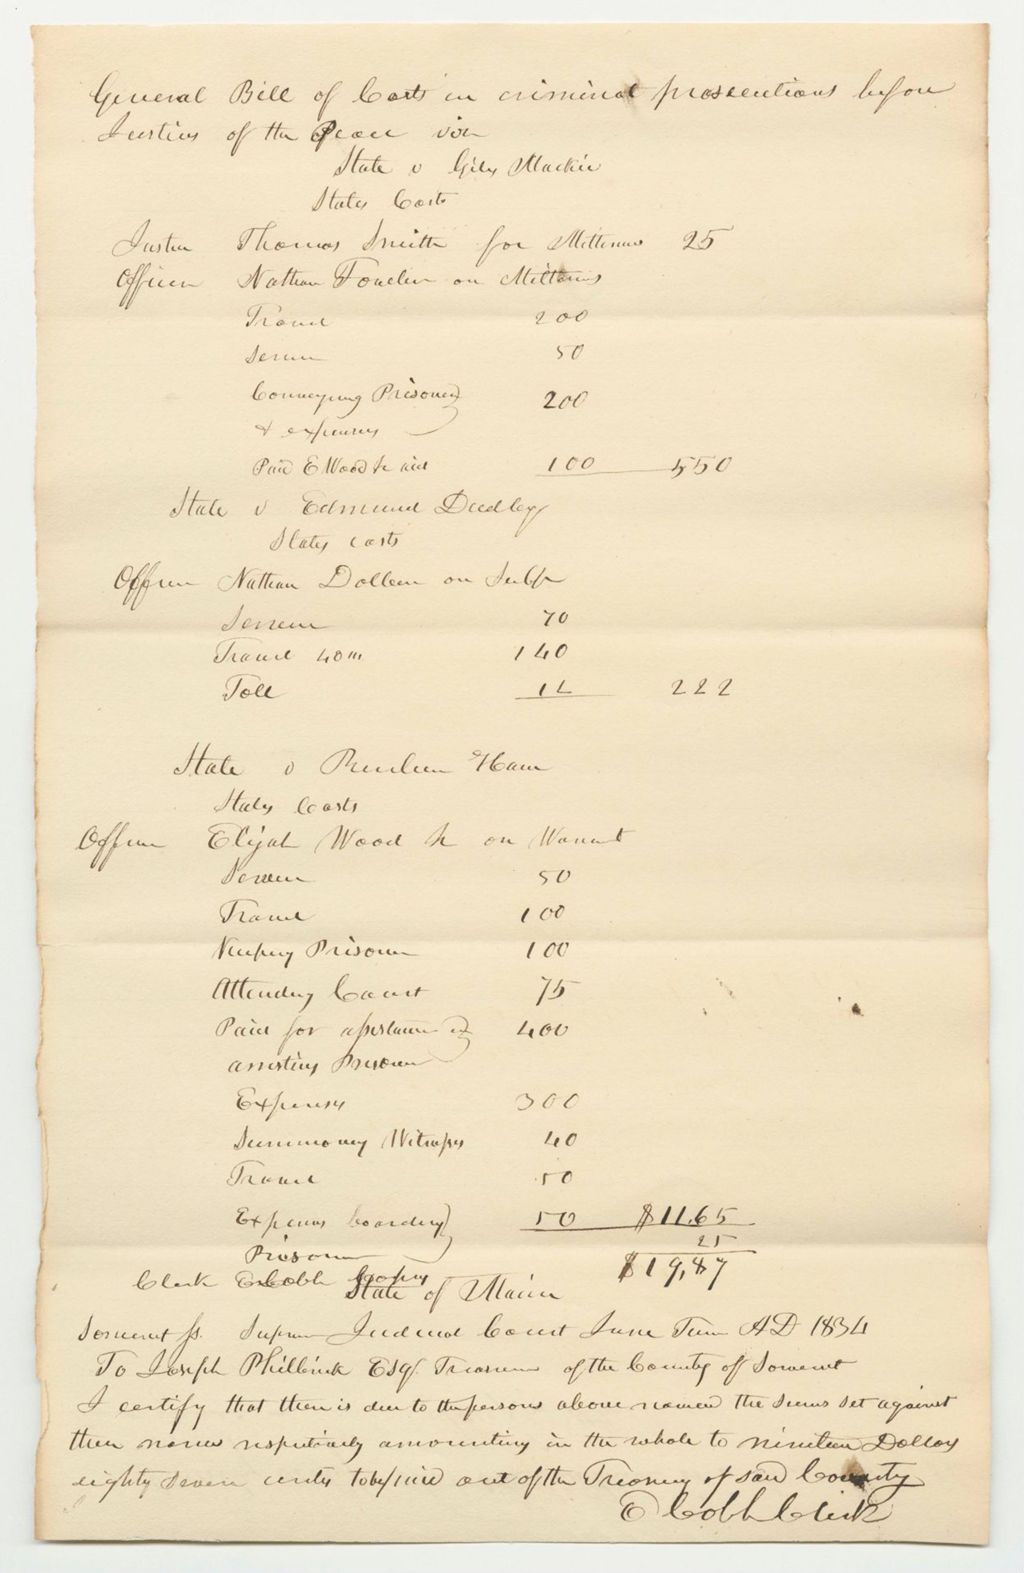 General Bill of Costs in criminal prosecutions before
Justices of the Peace viz
State v Giles Mackie
States Costs
Justice Thomas Smith for Mittimus 25
Officer Nathan Fowler on Mittimus
Travel 200
Service 50
Conveying Prisoner
& expenses 200
Paid E Wood Jr aid 100 550
State v Edmund Dudley
States costs
Officer Nathan on Subp
Service 70
Travel 40 m 140
Toll 12 222
State v Reuben Ham
States Costs
Officer Elijah Wood Jr on Warrant
Service 50
Travel 100
Keeping Prisoner 100
Attending Court 75
Paid for assistance in 400
arresting Prisoner
Expenses 300
Summoning Witnesses 40
Travel 50
Expenses boarding 50 $11.65
Prisoner 25
Clerk E Cobb Copies $19,87
State of Maine
Somerset ss. Supreme Judicial Court June Term AD 1834
To Joseph Philbrick Esq. Treasurer of the County of Somerset
I certify that there is due to the persons above named the sums set against
their names respectively amounting in the whole to nineteen Dollars
eighty seven cents to be paid out of the Treasury of said County
E Cobb Clerk